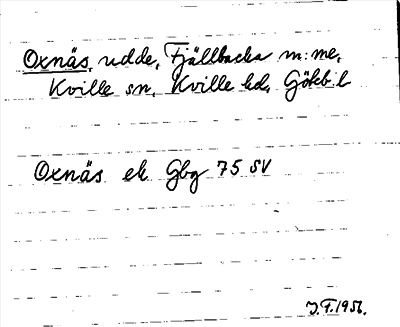 Oxnäs, udde, Fjällbacka m:me,
Kville sn, Kville hd, Göteb. l
Oxnäs ek Gbg 75 SV
J.F.1956.